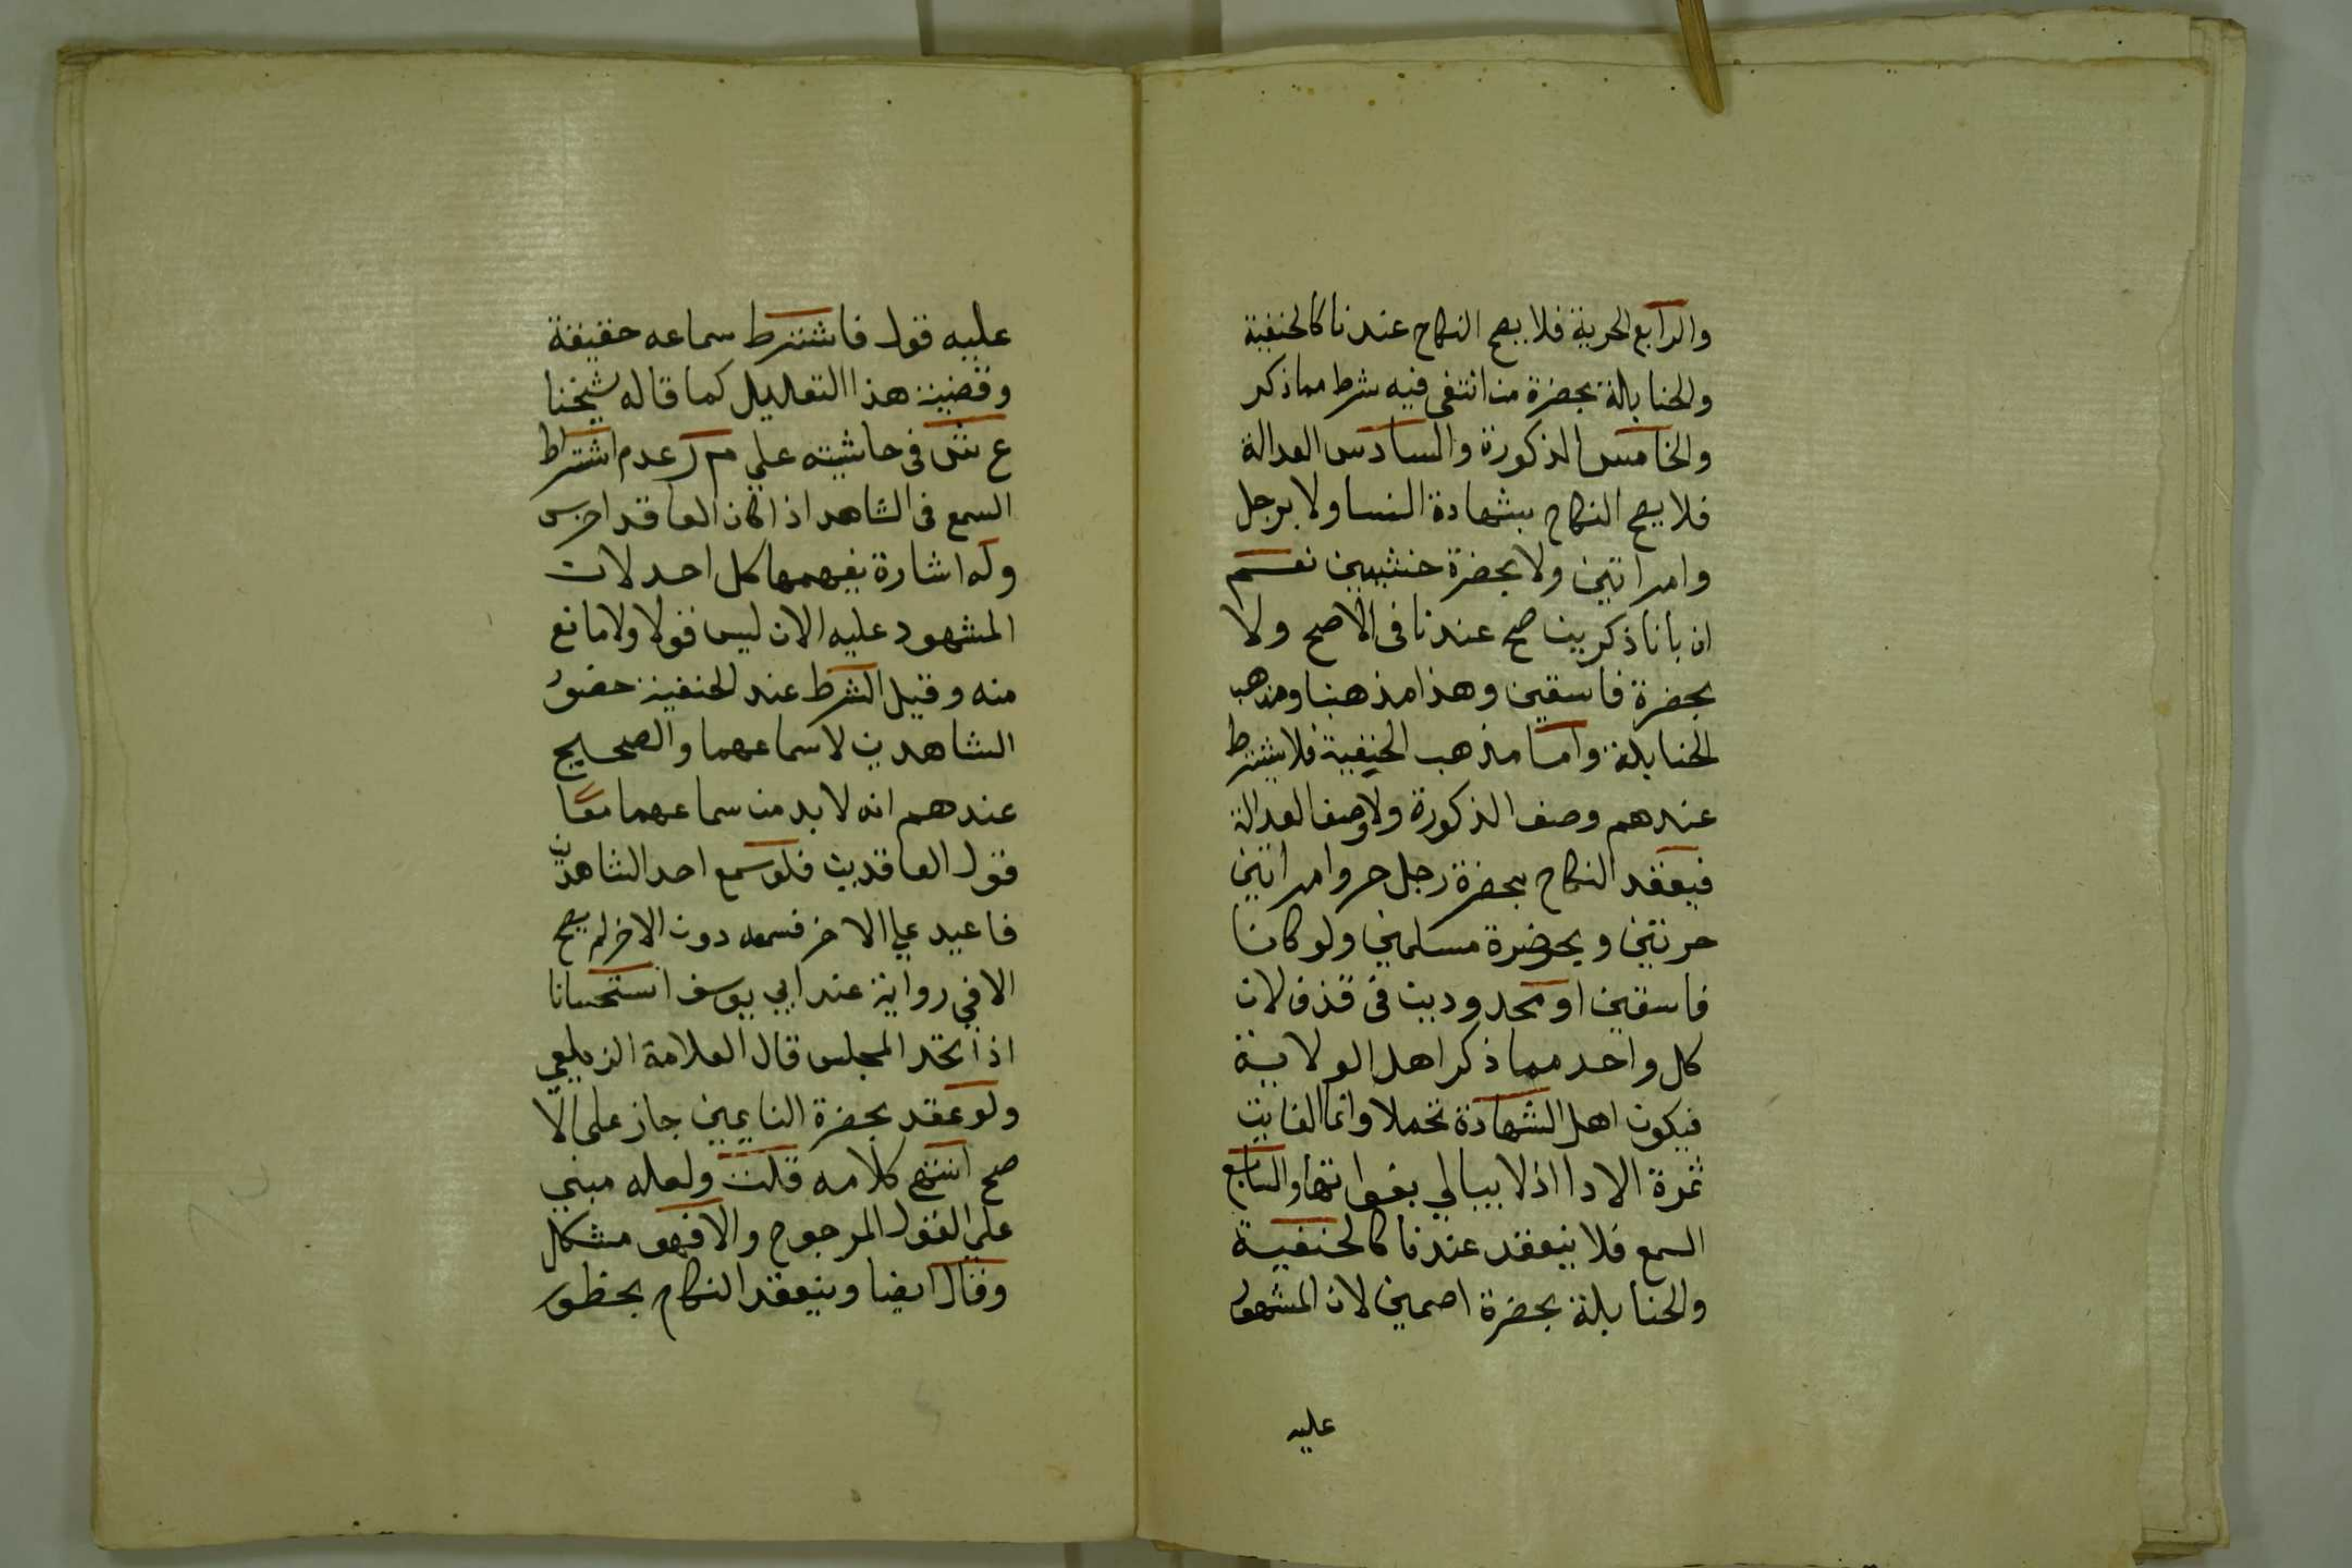 والرابع الحرية فلا يصح النكاح عندنا كالحنفية
والحنابلة بحضرة من انتفى فيه شرط مما ذكر
والخامس الذكورة والسادس العدالة
فلا يصح النكاح بشهادة النسا ولا برجل
وامراتين ولا بحضرة خنثيين نعم
ان بانا ذكرين صح عندنا فى الاصح ولا
بحضرة فاسقين وهذا مذهبنا ومذهب
الحنابلة واما مذهب الحنفية فلا يشترط
عندهم وصف الذكورة ولا وصف العدالة
فيعقد النكاح بحضرة رجل حر وامراتين
حرتين وبحضرة مسلمين ولو كانا
فاسقين او محدودين فى قذف لان
كل واحد مما ذكر اهل الولاية
فيكون اهل الشهادة تحملا وانما الفايت
ثمرة الادا اذ لا يبالي بفواتها والسابع
السمع فلا ينعقد عندنا كالحنفية
والحنابلة بحضرة اصمين لان المشهود
عليه
عليه قول فاشترط سماعه حقيقة
وقضية هذا التعليل كما قاله شيخنا
ع ش فى حاشيته علي م ر عدم اشتراط
السمع فى الشاهد اذا كان العاقد اخرس
وله اشارة يفهمها كل احد لان
المشهود عليه الان ليس قولا ولا مانع
منه وقيل الشرط عند الحنفية حضور
الشاهدين لا سماعهما والصحيح
عندهم انه لا بد من سماعهما معا
قول العاقدين فلو سمع احد الشاهدين
فاعيد علي الاخر فسمعه دون الاخر لم يصح
الا في رواية عند ابي يوسف استحسانا
اذا اتحد المجلس قال العلامة الزيلعي
ولو عقد بحضرة النايمين جاز على الا
صح انتهى كلامه قلت ولعله مبني
علي القول المرجوح والا فهو مشكل
وقال ايضا وينعقد النكاح بحظور